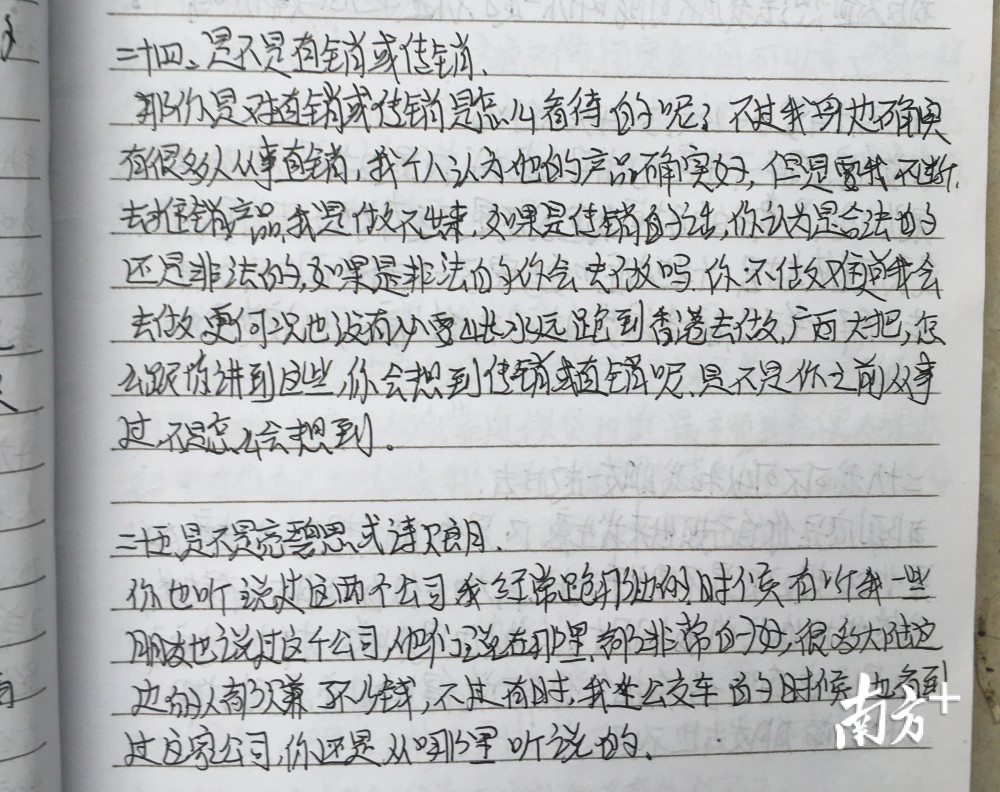 二十四、是不是直销或传销.
那你是对直销或传销是怎么看待的呢？不过我身边确实
有很多人从事直销,我个人认为他的产品确实好,但是要我不断.
去推销产品,我是做不出来.如果是传销的话,你认为是合法的
还是非法的,如果是非法的你会去做吗.你不做难道我会
去做.更何况也没有必要山长水远跑到香港去做,广西大把,怎
么跟你讲到这些,你会想到传销或直销呢.是不是你之前从事
过,不是怎么会想到.
二十五.是不是完碧思或诗贝朗.
你也听说过这两个公司.我经常跑那边的时候有听我一些
朋友也说过这个公司,他们说在那里都非常的好,很多大陆这
边的人都赚了不少钱,不过有时,我坐公交车的时候也看到
过这家公司,你还是从哪里听说的.
南方+